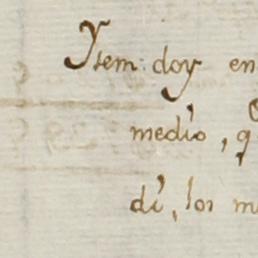 Ytem: doy en
medio, q
di, los m